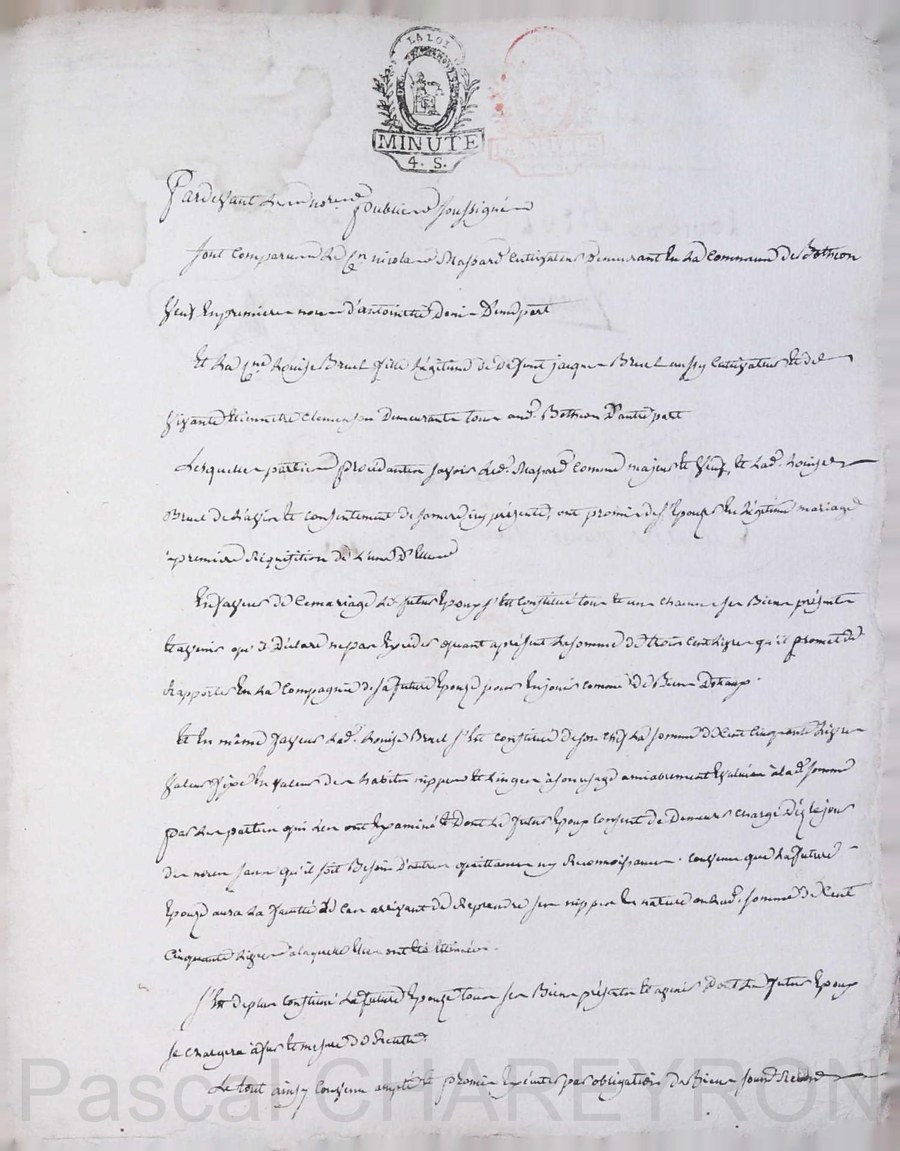 LA LOI
MINUTE
4. S.
MINUTE
Pardevant Les notres publics soussignés
sont comparus Le Cn nicolas Massard Cultivateur Demeurant En La Commune de Bothéon
Veuf En premieres noces d'antoinette Denis D'une part
Et La Cne Louise Bruel fille Légitime de Défunt jacques Bruel aussy Cultivateur Et de
Vivante Etiennette Clemençon Demeurante tous aud. Bothéon D'autre part
Lesquelles parties procédantes savoir Led. Massard Comme majeur Et Veuf, Et Lad. Louise
Bruel de L'avis Et Consentement de sa mere icy présente, ont promis de s'Epouser En Légitime mariage
a premiere Réquisition de L'une D'Elles
En faveur de Ce mariage Le futur Epoux s'Est Constitué tous Et un chacuns ses Biens présents
Et avenir qu'il Déclare ne pas Excéder quant aprésent La somme de trois Cent Livres qu'il promet de
Rapporter En La Compagnie de sa future Epouze pour En jouir comme de Biens Dotaux.
Et En même faveur Lad. Louise Bruel s'Est Constituée de son Chef La somme de Cent Cinquante Livres
Valeur fixe En Valeur des habits nippes Et Linges à son usage amiablement Evalués à lad. somme
par Les parties qui Les ont Examiné Et Dont Le futur Epoux Consent de Demeurer Chargé Dèz Le jour
des noces sans qu'il soit Besoin D'autre quittance ny Reconnoissance. Convenu que La future
Epouze aura La faculté Le Cas arrivant de Reprendre ses nippes En nature ou Lad. somme de Cent
Cinquante Livres à laquelle Elles ont Eté Estimées.
s'Est de plus Constitué La future Epouze tous ses Biens présents Et avenir, dont Le futur Epoux
se Chargera à fur Et mesure de Recette.
Le tout ainsy Convenu accepté Et promis Exécuter par obligation de Biens soumis Renonc
Pascal CHAREYRON